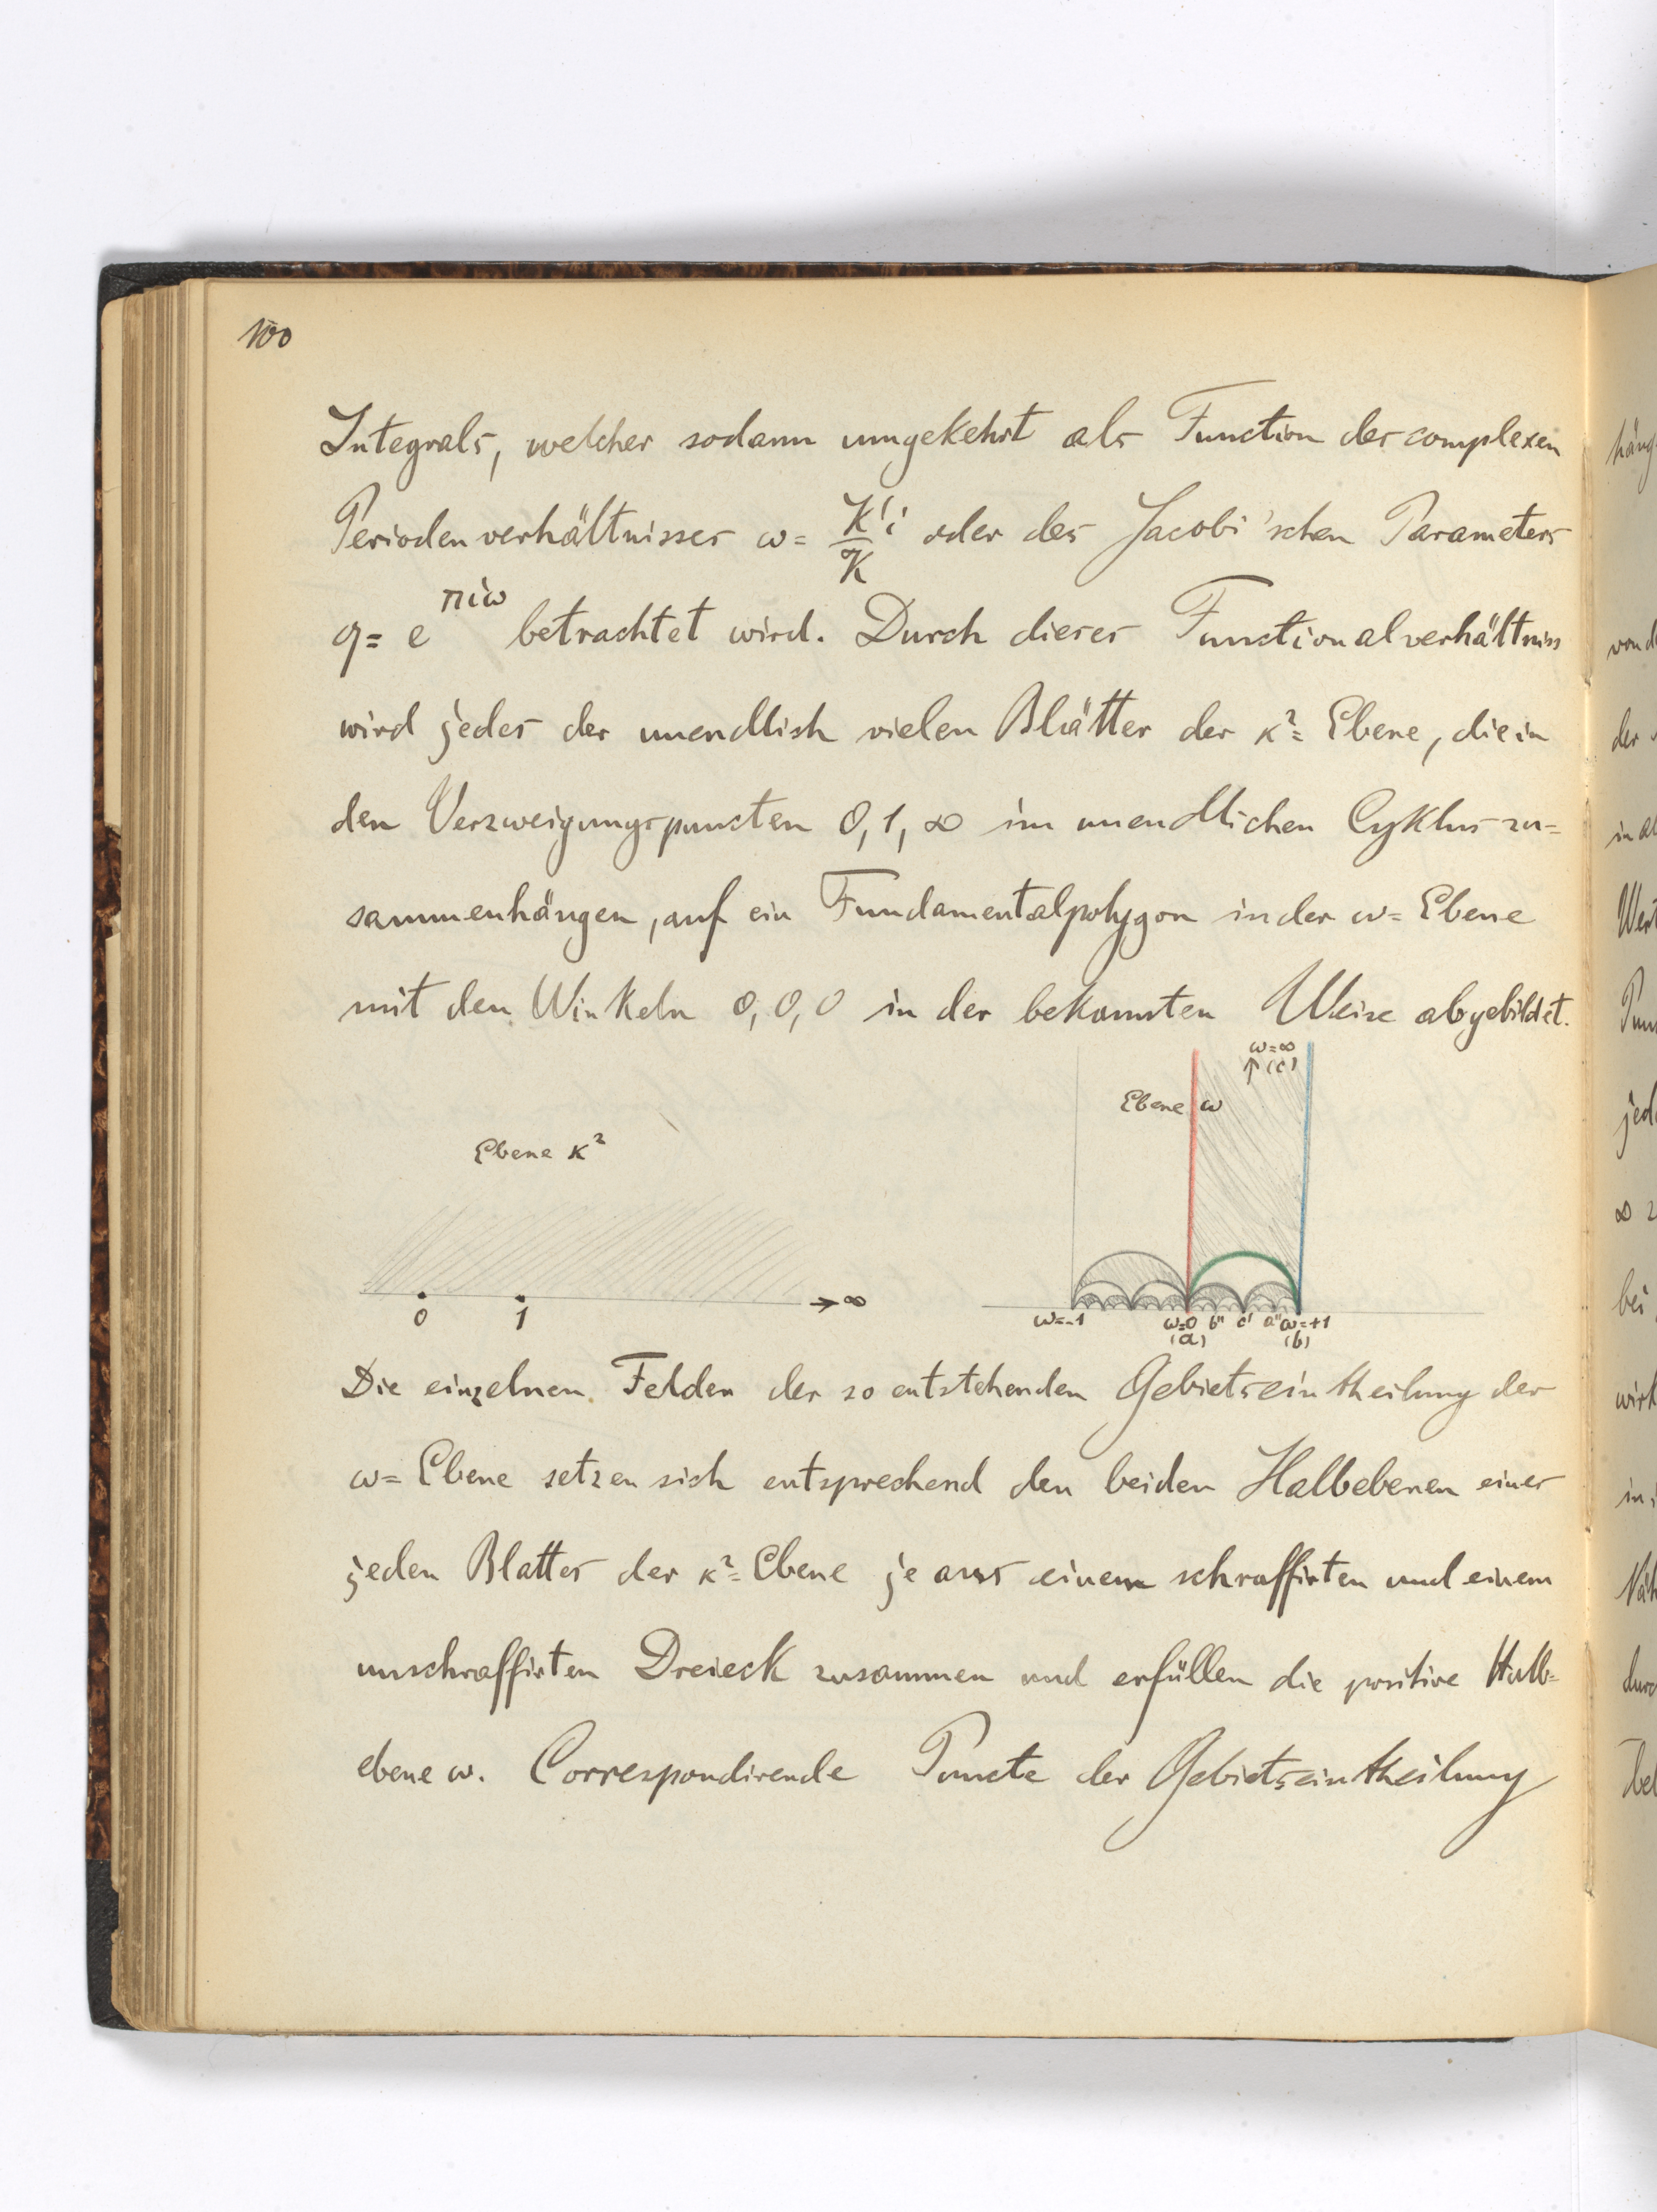 100
Integrals, welcher sodann umgekehrt als Function des complexen
Periodenverhältnisses ω = K'i/K oder des Jacobi'schen Parameters
q = e^πiω betrachtet wird. Durch dieses Functionalverhältniss
wird jedes der unendlich vielen Blätter der κ²= Ebene, die in
den Verzweigungspuncten 0, 1, ∞ im unendlichen Cyklus zu=
sammenhängen, auf ein Fundamentalpolygon in der ω= Ebene
mit den Winkeln 0, 0, 0 in der bekannten Weise abgebildet.
ω=∞
↑ (c)
Ebene ω
Ebene κ²
0 1 → ∞
ω=-1 ω=0 b'' c' a'' ω=+1
(a) (b)
Die einzelnen Felder der so entstehenden Gebietseintheilung der
ω= Ebene setzen sich entsprechend den beiden Halbebenen eines
jeden Blattes der κ²= Ebene je aus einem schraffirten und einem
unschraffirten Dreieck zusammen und erfüllen die positive Halb=
ebene ω. Correspondirende Puncte der Gebietseintheilung
häng
von d
der
in al
Wert
jed
∞
bei
wirk
in
durc